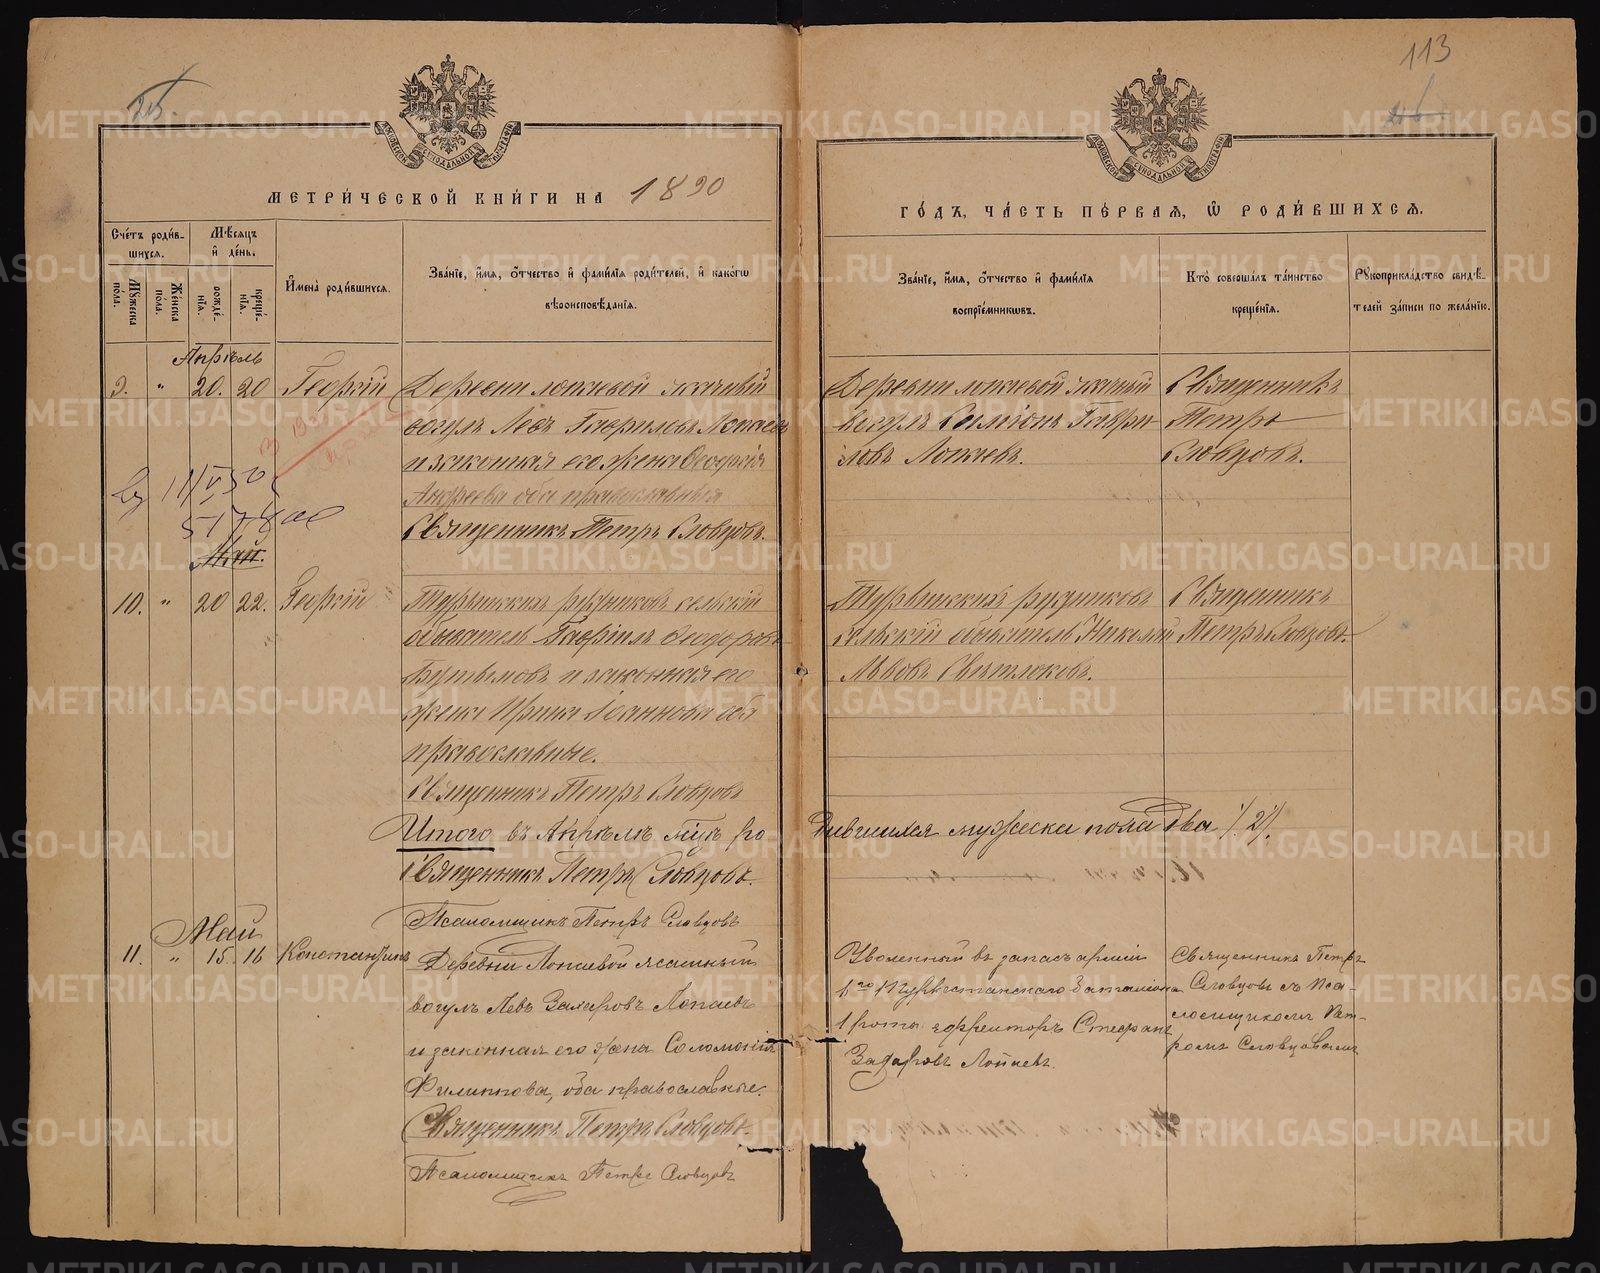 113
МОСКОВСКОЙ СѴНОДАЛЬНОЙ ТИПОГРАФІИ
МОСКОВСКОЙ СѴНОДАЛЬНОЙ ТИПОГРАФІИ
МЕТРИ́ЧЕСКОЙ КНИ́ГИ НА 1890
ГО́ДЪ, ЧА́СТЬ ПЕ́РВАЯ, Ѡ РОДИ́ВШИХСЯ.
Сче́тъ роди́в-
шихся.
Мꙋжеска пола.
Же́нска пола.
Мѣ́сяцъ
и де́нь.
рожде́-
нїя.
креще́-
нїя.
Имена̀ роди́вшихся.
Зва́нїе, и́мя, о́тчество и фами́лїя роди́телей, и како́гѡ
вѣроисповѣ́данїя.
Зва́нїе, и́мя, о́тчество и фами́лїя
воспрїе́мникѡвъ.
Кто̀ соверша́лъ та́инство
креще́нїя.
Рꙋкоприкла́дство свидѣ́-
телей за́писи по жела́нїю.
Апрѣль
9. " 20. 20 Георгій
Деревни Лопаевой ясачный
вогулъ Левъ Гавриловъ Лопаевъ
и законная его жена
Андреева оба православныя
Священникъ Петръ Словцовъ.
Деревни Лопаевой ясачный
вогулъ Гаври-
ловъ Лопаевъ.
Священникъ
Петръ
Словцовъ.
11/V 50
Май.
10. " 20 22. Георгій
Турьинскихъ рудниковъ сельскій
обыватель Гавріилъ Феодоровъ
и законная его
жена Ирина Іоаннова оба
православные.
Священникъ Петръ Словцовъ
Турьинскихъ рудниковъ
сельскій обыватель Николай
Львовъ Свѣтлоковъ.
Священникъ
Петръ Словцовъ.
Итого въ Апрѣлѣ мцѣ ро
дившихся мужеска пола два /2/.
Священникъ Петръ Словцовъ.
Псаломщикъ Петръ Словцовъ
Май
11. " 15. 16 Константинъ
Деревни Лопаевой ясашный
вогулъ Левъ Захаровъ Лопаевъ
и законная его жена Соломонія
Филиппова, оба православные.
Священникъ Петръ Словцовъ.
Псаломщикъ Петръ Словцовъ
Уволенный въ запасъ арміи
1го Туркестанскаго баталіона
1 роты ефрейторъ Стефанъ
Захаровъ Лопаевъ.
Священникъ Петръ
Словцовъ съ Пса-
ломщикомъ Пет-
ромъ Словцовымъ
METRIKI.GASO-URAL.RU